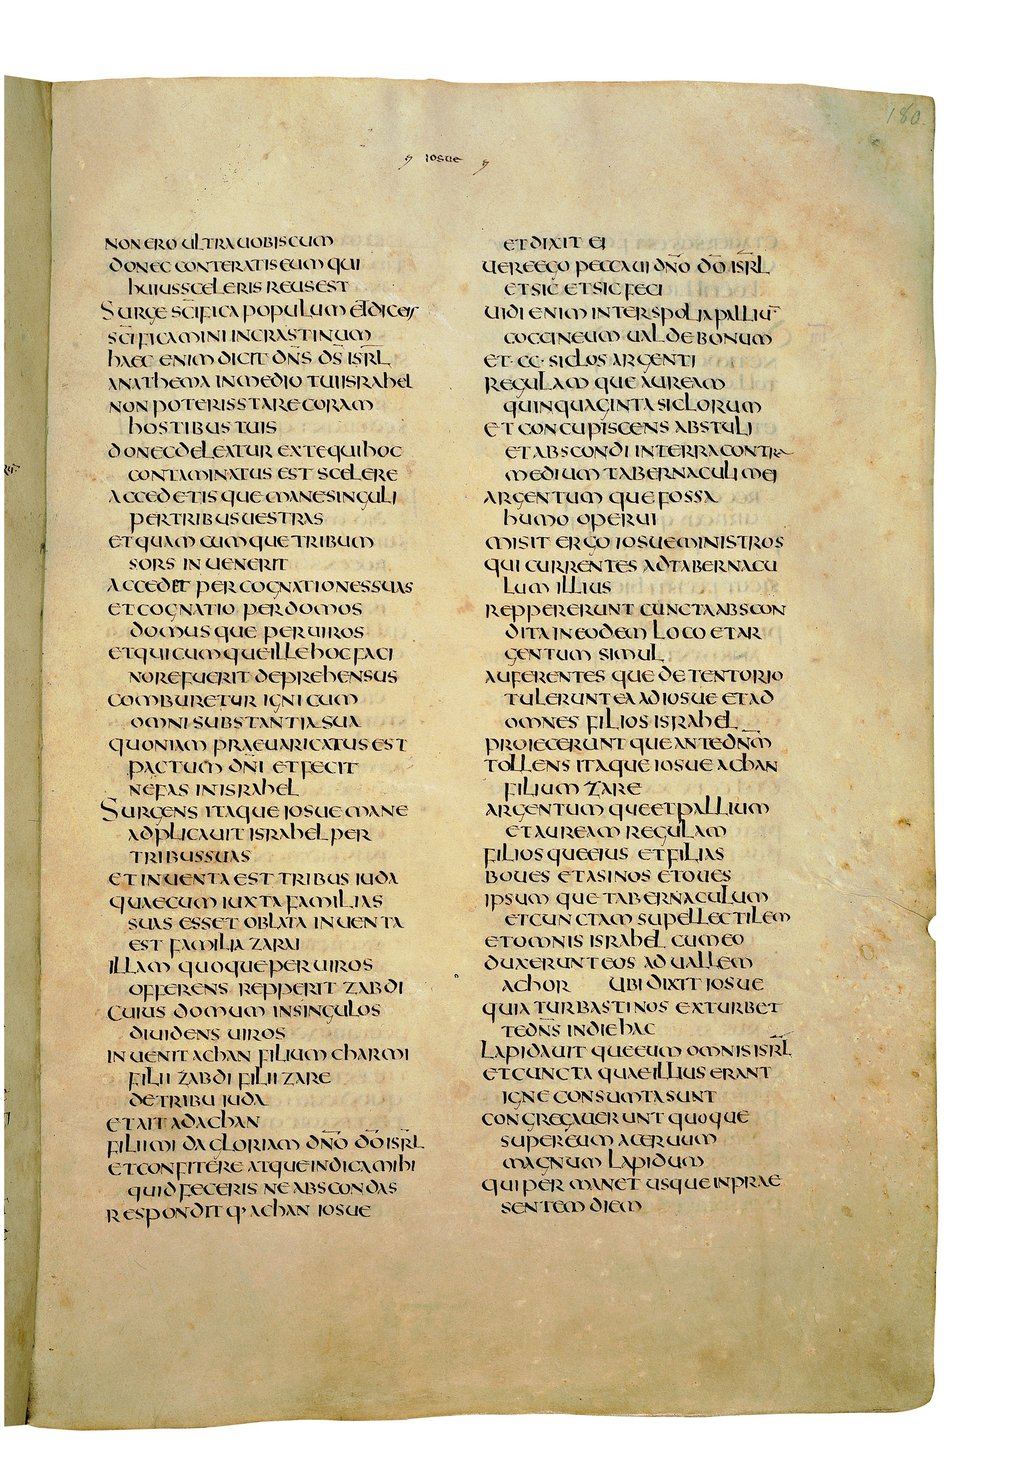 180
IOSUE
NON ERO ULTRA UOBISCUM
DONEC CONTERATIS EUM QUI
HUIUS SCELERIS REUS EST
SURGE SC̄IFICA POPULUM ET DIC EIS
SC̄IFICAMINI IN CRASTINUM
HAEC ENIM DICIT DN̄S DS̄ ISRL̄
ANATHEMA IN MEDIO TUI ISRAHEL
NON POTERIS STARE CORAM
HOSTIBUS TUIS
DONEC DELEATUR EX TE QUI HOC
CONTAMINATUS EST SCELERE
ACCEDETISQUE MANE SINGULI
PER TRIBUS UESTRAS
ET QUAMCUMQUE TRIBUM
SORS INUENERIT
ACCEDET PER COGNATIONES SUAS
ET COGNATIO PER DOMOS
DOMUSQUE PER UIROS
ET QUICUMQUE ILLE HOC FACI
NORE FUERIT DEPREHENSUS
COMBURETUR IGNI CUM
OMNI SUBSTANTIA SUA
QUONIAM PRAEUARICATUS EST
PACTUM DN̄I ET FECIT
NEFAS IN ISRAHEL
SURGENS ITAQUE IOSUE MANE
ADPLICAUIT ISRAHEL PER
TRIBUS SUAS
ET INUENTA EST TRIBUS IUDA
QUAE CUM IUXTA FAMILIAS
SUAS ESSET OBLATA INUENTA
EST FAMILIA ZARAI
ILLAM QUOQUE PER UIROS
OFFERENS REPPERIT ZABDI
CUIUS DOMUM IN SINGULOS
DIUIDENS UIROS
INUENIT ACHAN FILIUM CHARMI
FILII ZABDI FILII ZARE
DE TRIBU IUDA
ET AIT AD ACHAN
FILI MI DA GLORIAM DN̄O DŌ ISRL̄
ET CONFITERE ATQUE INDICA MIHI
QUID FECERIS NE ABSCONDAS
RESPONDITQ' ACHAN IOSUE
ET DIXIT EI
UERE EGO PECCAUI DN̄O DŌ ISRL̄
ET SIC ET SIC FECI
UIDI ENIM INTER SPOLIA PALLIŪ
COCCINEUM UALDE BONUM
ET · CC · SICLOS ARGENTI
REGULAMQUE AUREAM
QUINQUAGINTA SICLORUM
ET CONCUPISCENS ABSTULI
ET ABSCONDI IN TERRA CONTRA
MEDIUM TABERNACULI MEI
ARGENTUMQUE FOSSA
HUMO OPERUI
MISIT ERGO IOSUE MINISTROS
QUI CURRENTES AD TABERNACU
LUM ILLIUS
REPPERERUNT CUNCTA ABSCON
DITA IN EODEM LOCO ET AR
GENTUM SIMUL
AUFERENTESQUE DE TENTORIO
TULERUNT EA AD IOSUE ET AD
OMNES FILIOS ISRAHEL
PROIECERUNTQUE ANTE DN̄M
TOLLENS ITAQUE IOSUE ACHAN
FILIUM ZARE
ARGENTUMQUE ET PALLIUM
ET AUREAM REGULAM
FILIOSQUE EIUS ET FILIAS
BOUES ET ASINOS ET OUES
IPSUMQUE TABERNACULUM
ET CUNCTAM SUPELLECTILEM
ET OMNIS ISRAHEL CUM EO
DUXERUNT EOS AD UALLEM
ACHOR UBI DIXIT IOSUE
QUIA TURBASTI NOS EXTURBET
TE DN̄S IN DIE HAC
LAPIDAUITQUE EUM OMNIS ISRL̄
ET CUNCTA QUAE ILLIUS ERANT
IGNE CONSUMTA SUNT
CONGREGAUERUNT QUOQUE
SUPER EUM ACERUUM
MAGNUM LAPIDUM
QUI PERMANET USQUE IN PRAE
SENTEM DIEM